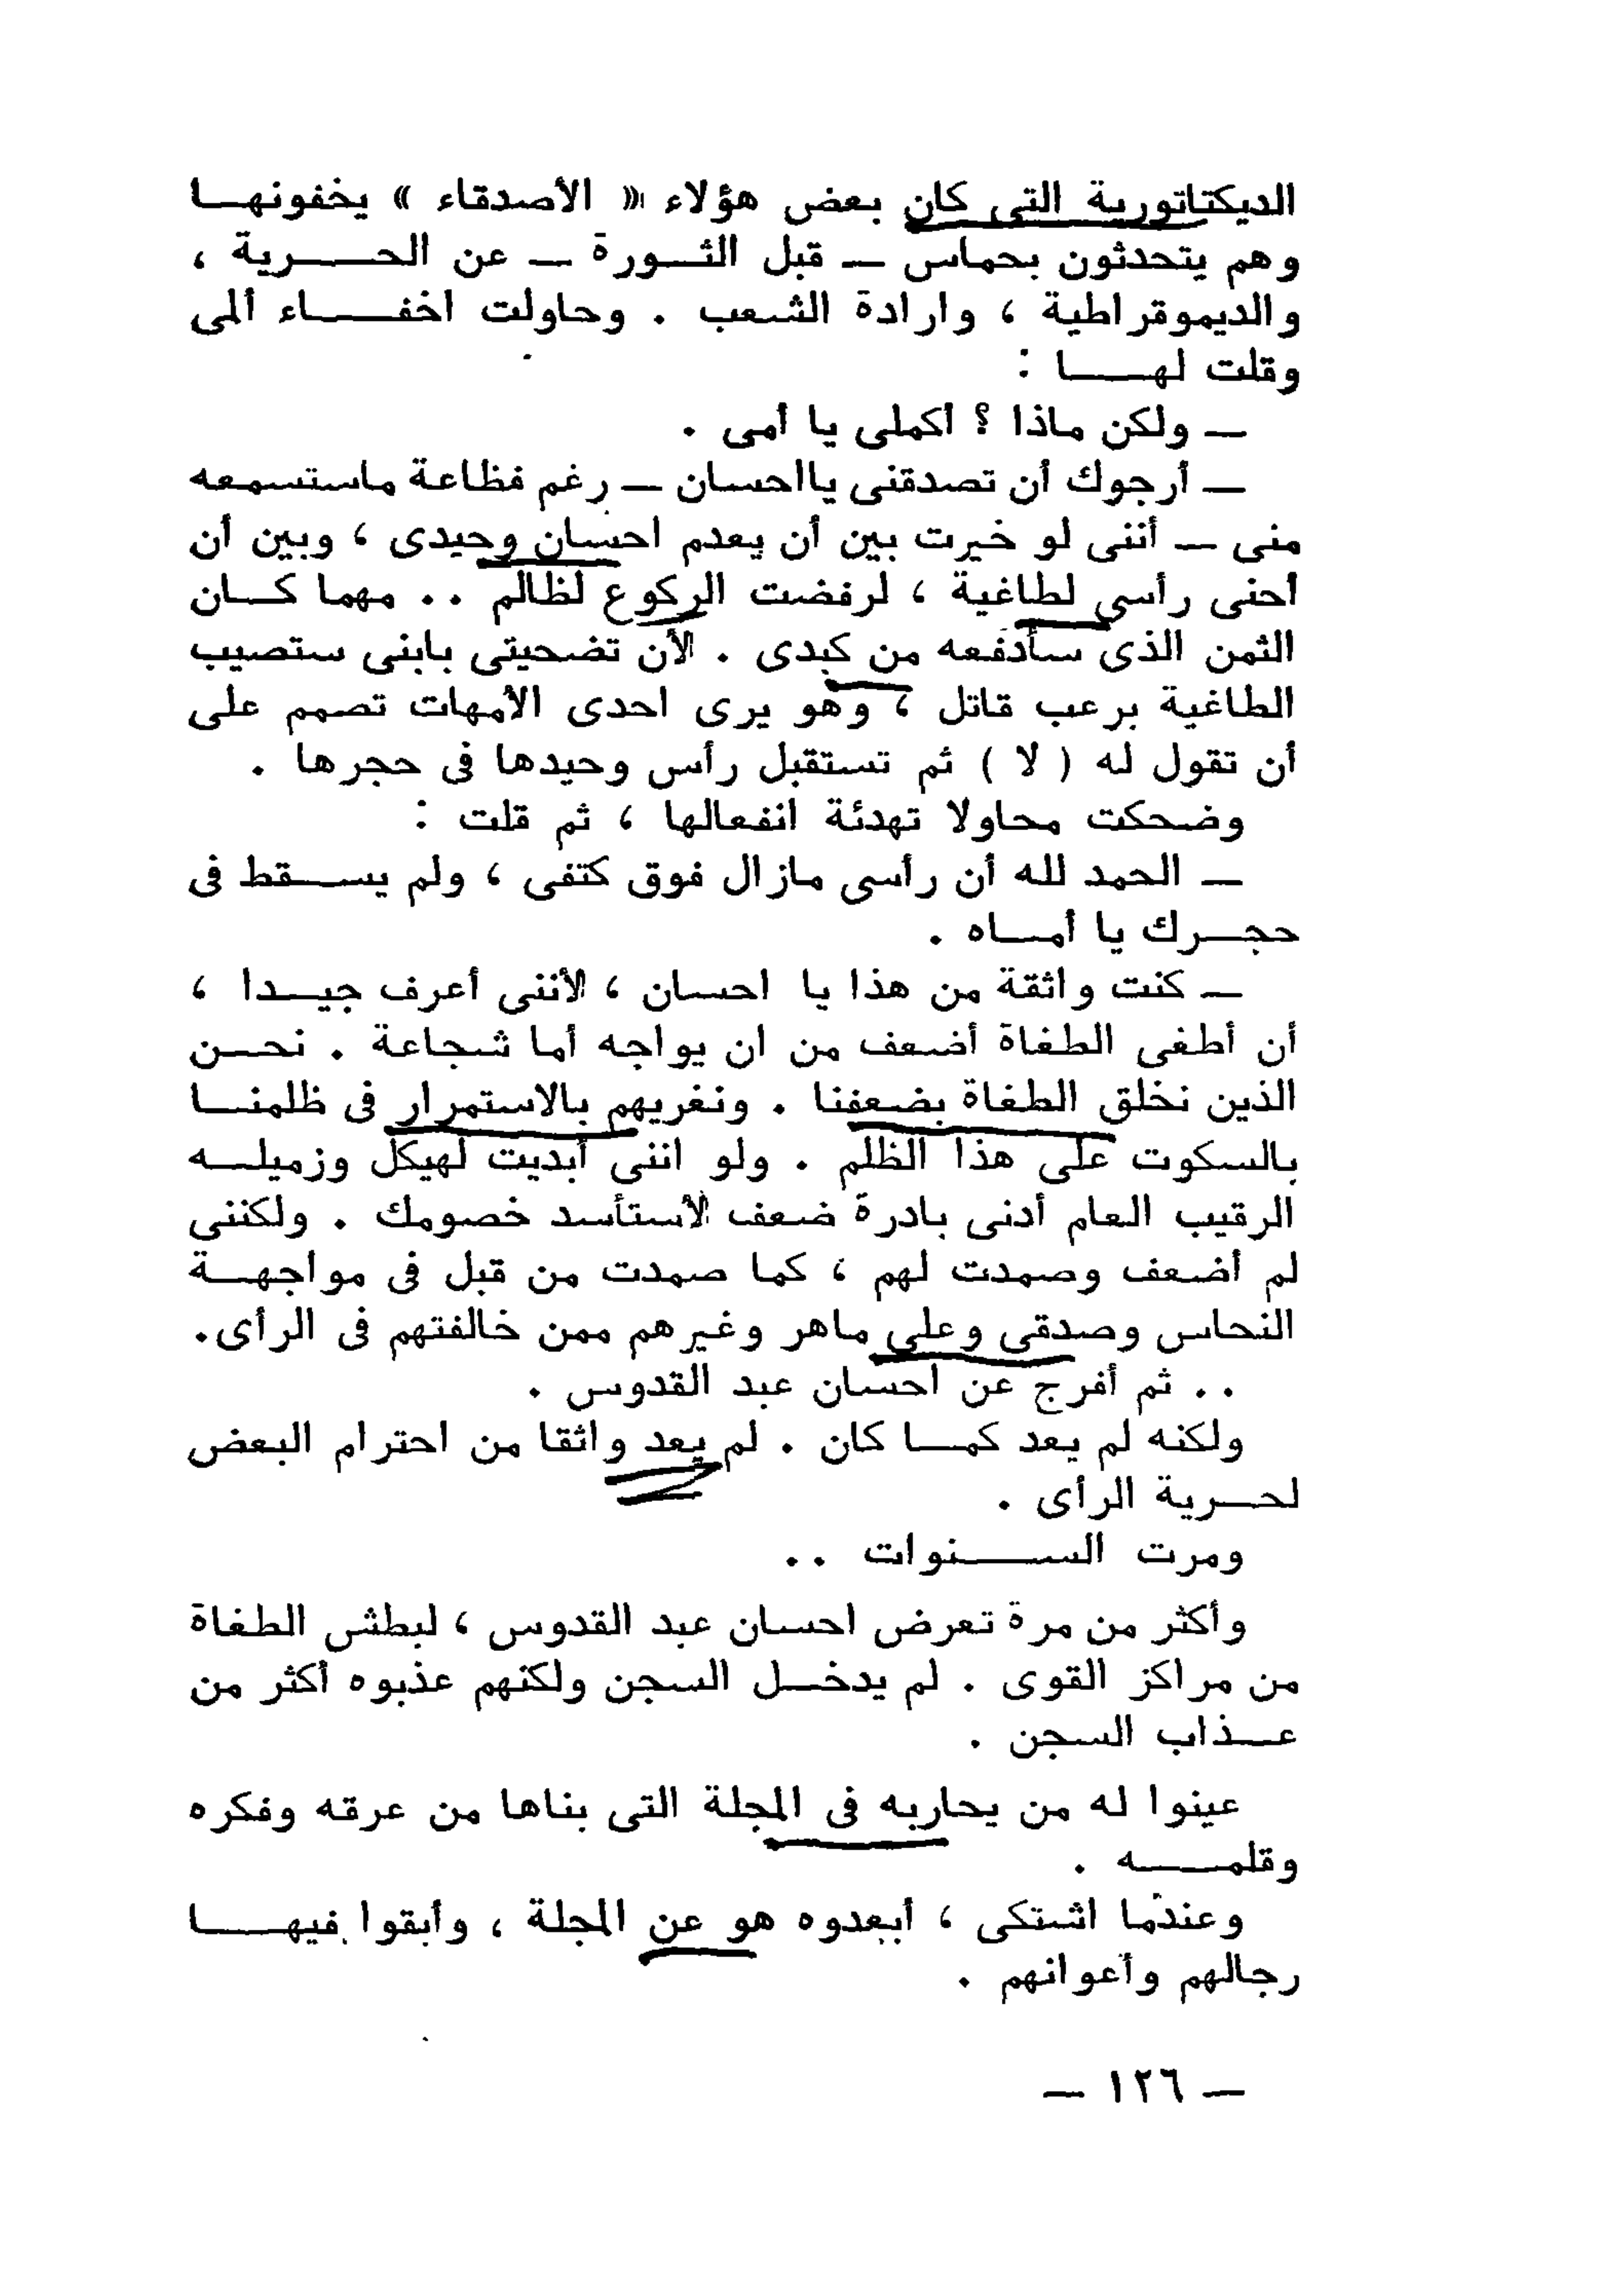 الديكتاتورية التى كان بعض هؤلاء « الأصدقاء » يخفونها
وهم يتحدثون بحماس — قبل الثورة — عن الحرية ،
والديموقراطية ، وارادة الشعب . وحاولت اخفاء ألمى
وقلت لها :
— ولكن ماذا ؟ أكملى يا أمى .
— أرجوك أن تصدقنى يااحسان — رغم فظاعة ماستسمعه
منى — أننى لو خيرت بين أن يعدم احسان وحيدى ، وبين أن
أحنى رأسى لطاغية ، لرفضت الركوع لظالم .. مهما كان
الثمن الذى سأدفعه من كبدى . لأن تضحيتى بابنى ستصيب
الطاغية برعب قاتل ، وهو يرى احدى الأمهات تصمم على
أن تقول له ( لا ) ثم تستقبل رأس وحيدها فى حجرها .
وضحكت محاولا تهدئة انفعالها ، ثم قلت :
— الحمد لله أن رأسى مازال فوق كتفى ، ولم يسقط فى
حجرك يا أماه .
— كنت واثقة من هذا يا احسان ، لأننى أعرف جيدا ،
أن أطغى الطغاة أضعف من ان يواجه أما شجاعة . نحن
الذين نخلق الطغاة بضعفنا . ونغريهم بالاستمرار فى ظلمنا
بالسكوت على هذا الظلم . ولو اننى أبديت لهيكل وزميله
الرقيب العام أدنى بادرة ضعف لأستأسد خصومك . ولكننى
لم أضعف وصمدت لهم ، كما صمدت من قبل فى مواجهة
النحاس وصدقى وعلى ماهر وغيرهم ممن خالفتهم فى الرأى.
.. ثم أفرج عن احسان عبد القدوس .
ولكنه لم يعد كما كان . لم يعد واثقا من احترام البعض
لحرية الرأى .
ومرت السنوات ..
وأكثر من مرة تعرض احسان عبد القدوس ، لبطش الطغاة
من مراكز القوى . لم يدخل السجن ولكنهم عذبوه أكثر من
عذاب السجن .
عينوا له من يحاربه فى المجلة التى بناها من عرقه وفكره
وقلمه .
وعندما اشتكى ، أبعدوه هو عن المجلة ، وأبقوا فيها
رجالهم وأعوانهم .
— ١٢٦ —